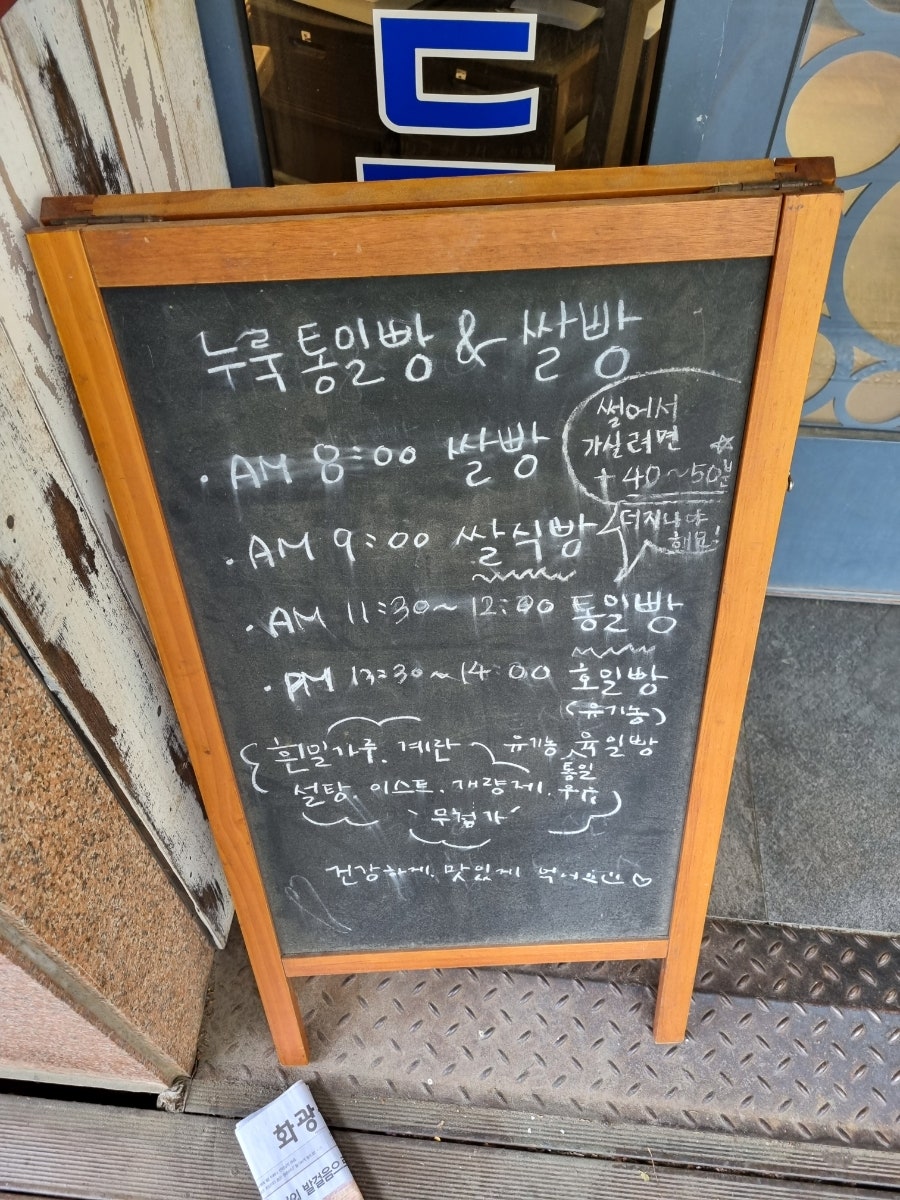 누룩 통밀빵 & 쌀빵
· AM 8:00 쌀빵
썰어서
가실려면
+ 40~50분
더지나야
해요!
· AM 9:00 쌀식빵
· AM 11:30~12:00 통밀빵
· PM 13:30~14:00 호밀빵
(유기농)
유기농 통밀
흰밀가루. 계란
설탕. 이스트. 개량제. 우유
무첨가
건강하게. 맛있게 먹어요 ♡
화광
발걸음으로